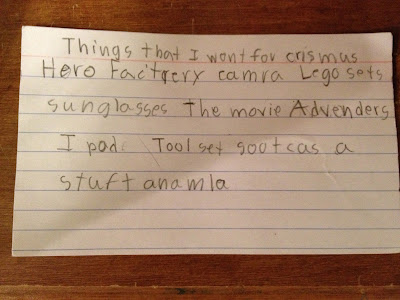 Things that I wont for crismus
Hero Facitrery camra Lego sets
sunglasses The movie Advenders
I pad. Tool set sootcas a
stuft anamla